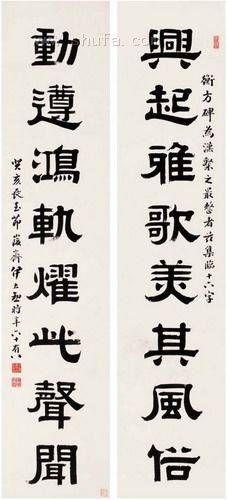 衡方碑為漢隸之最整者茲集臨十六字
興起雅歌美其風俗
動遵鴻軌燿此聲聞
癸亥長至節峻齋伊立勳時年六十有八